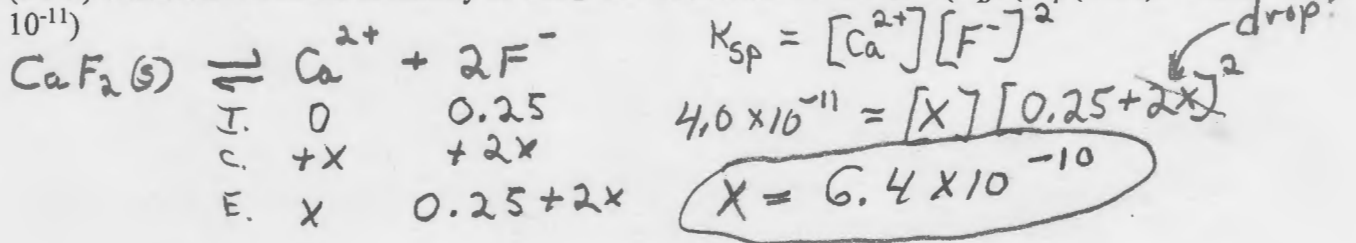 10⁻¹¹)
CaF₂(s) ⇌ Ca²⁺ + 2F⁻
I. 0 0.25
C. +x +2x
E. x 0.25+2x
Ksp = [Ca²⁺][F⁻]²
drop!
4.0 x 10⁻¹¹ = [x] [0.25+2x]²
x = 6.4 x 10⁻¹⁰